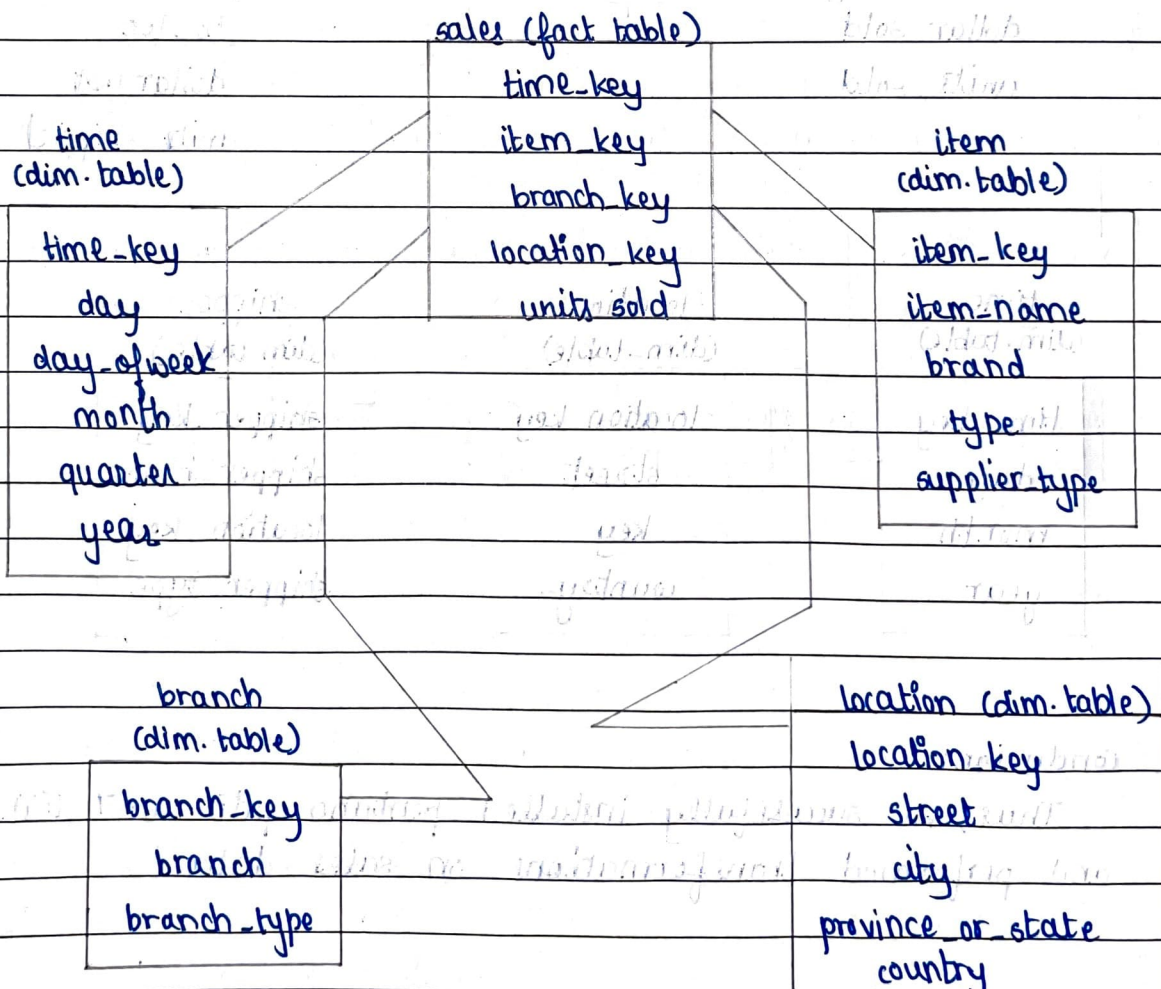 sales (fact table)
time_key
item_key
branch_key
location_key
units sold
time
(dim. table)
time_key
day
day_of_week
month
quarter
year
item
(dim. table)
item_key
item_name
brand
type
supplier_type
branch
(dim. table)
branch_key
branch
branch_type
location (dim. table)
location_key
street
city
province_or_state
country